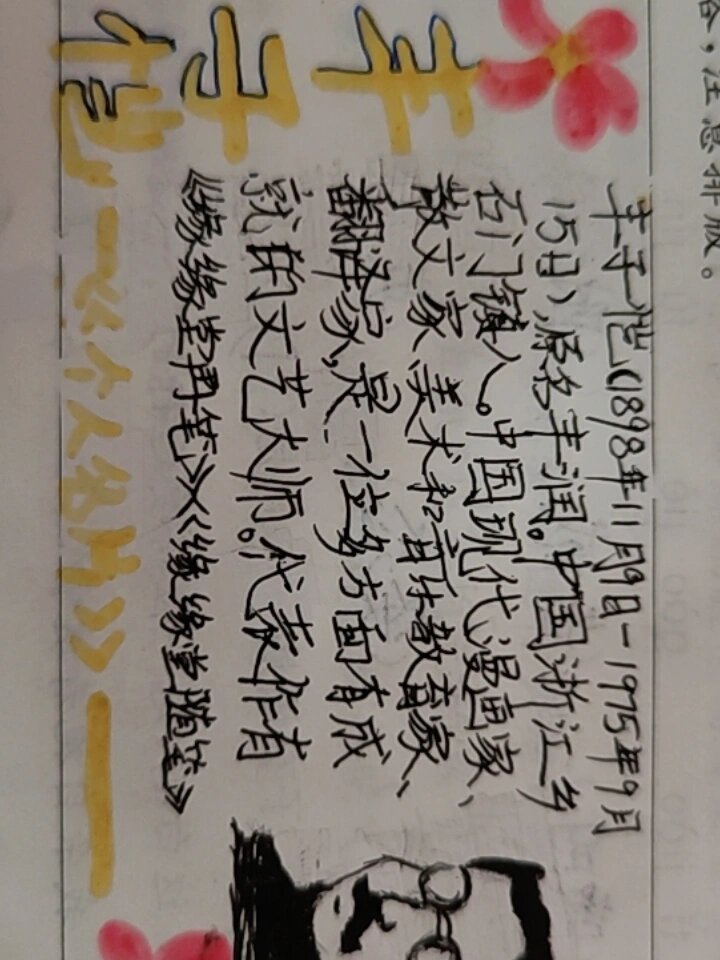 ，注意排版。
丰
子
恺
丰子恺(1898年11月9日-1975年9月
15日),原名丰润。中国浙江乡
石门镇人。中国现代漫画家、
散文家 美术和音乐教育家、
翻译家,是一位多方面有成
就的文艺大师。代表作有
《缘缘堂再笔》《缘缘堂随笔》
—《个人名片》—